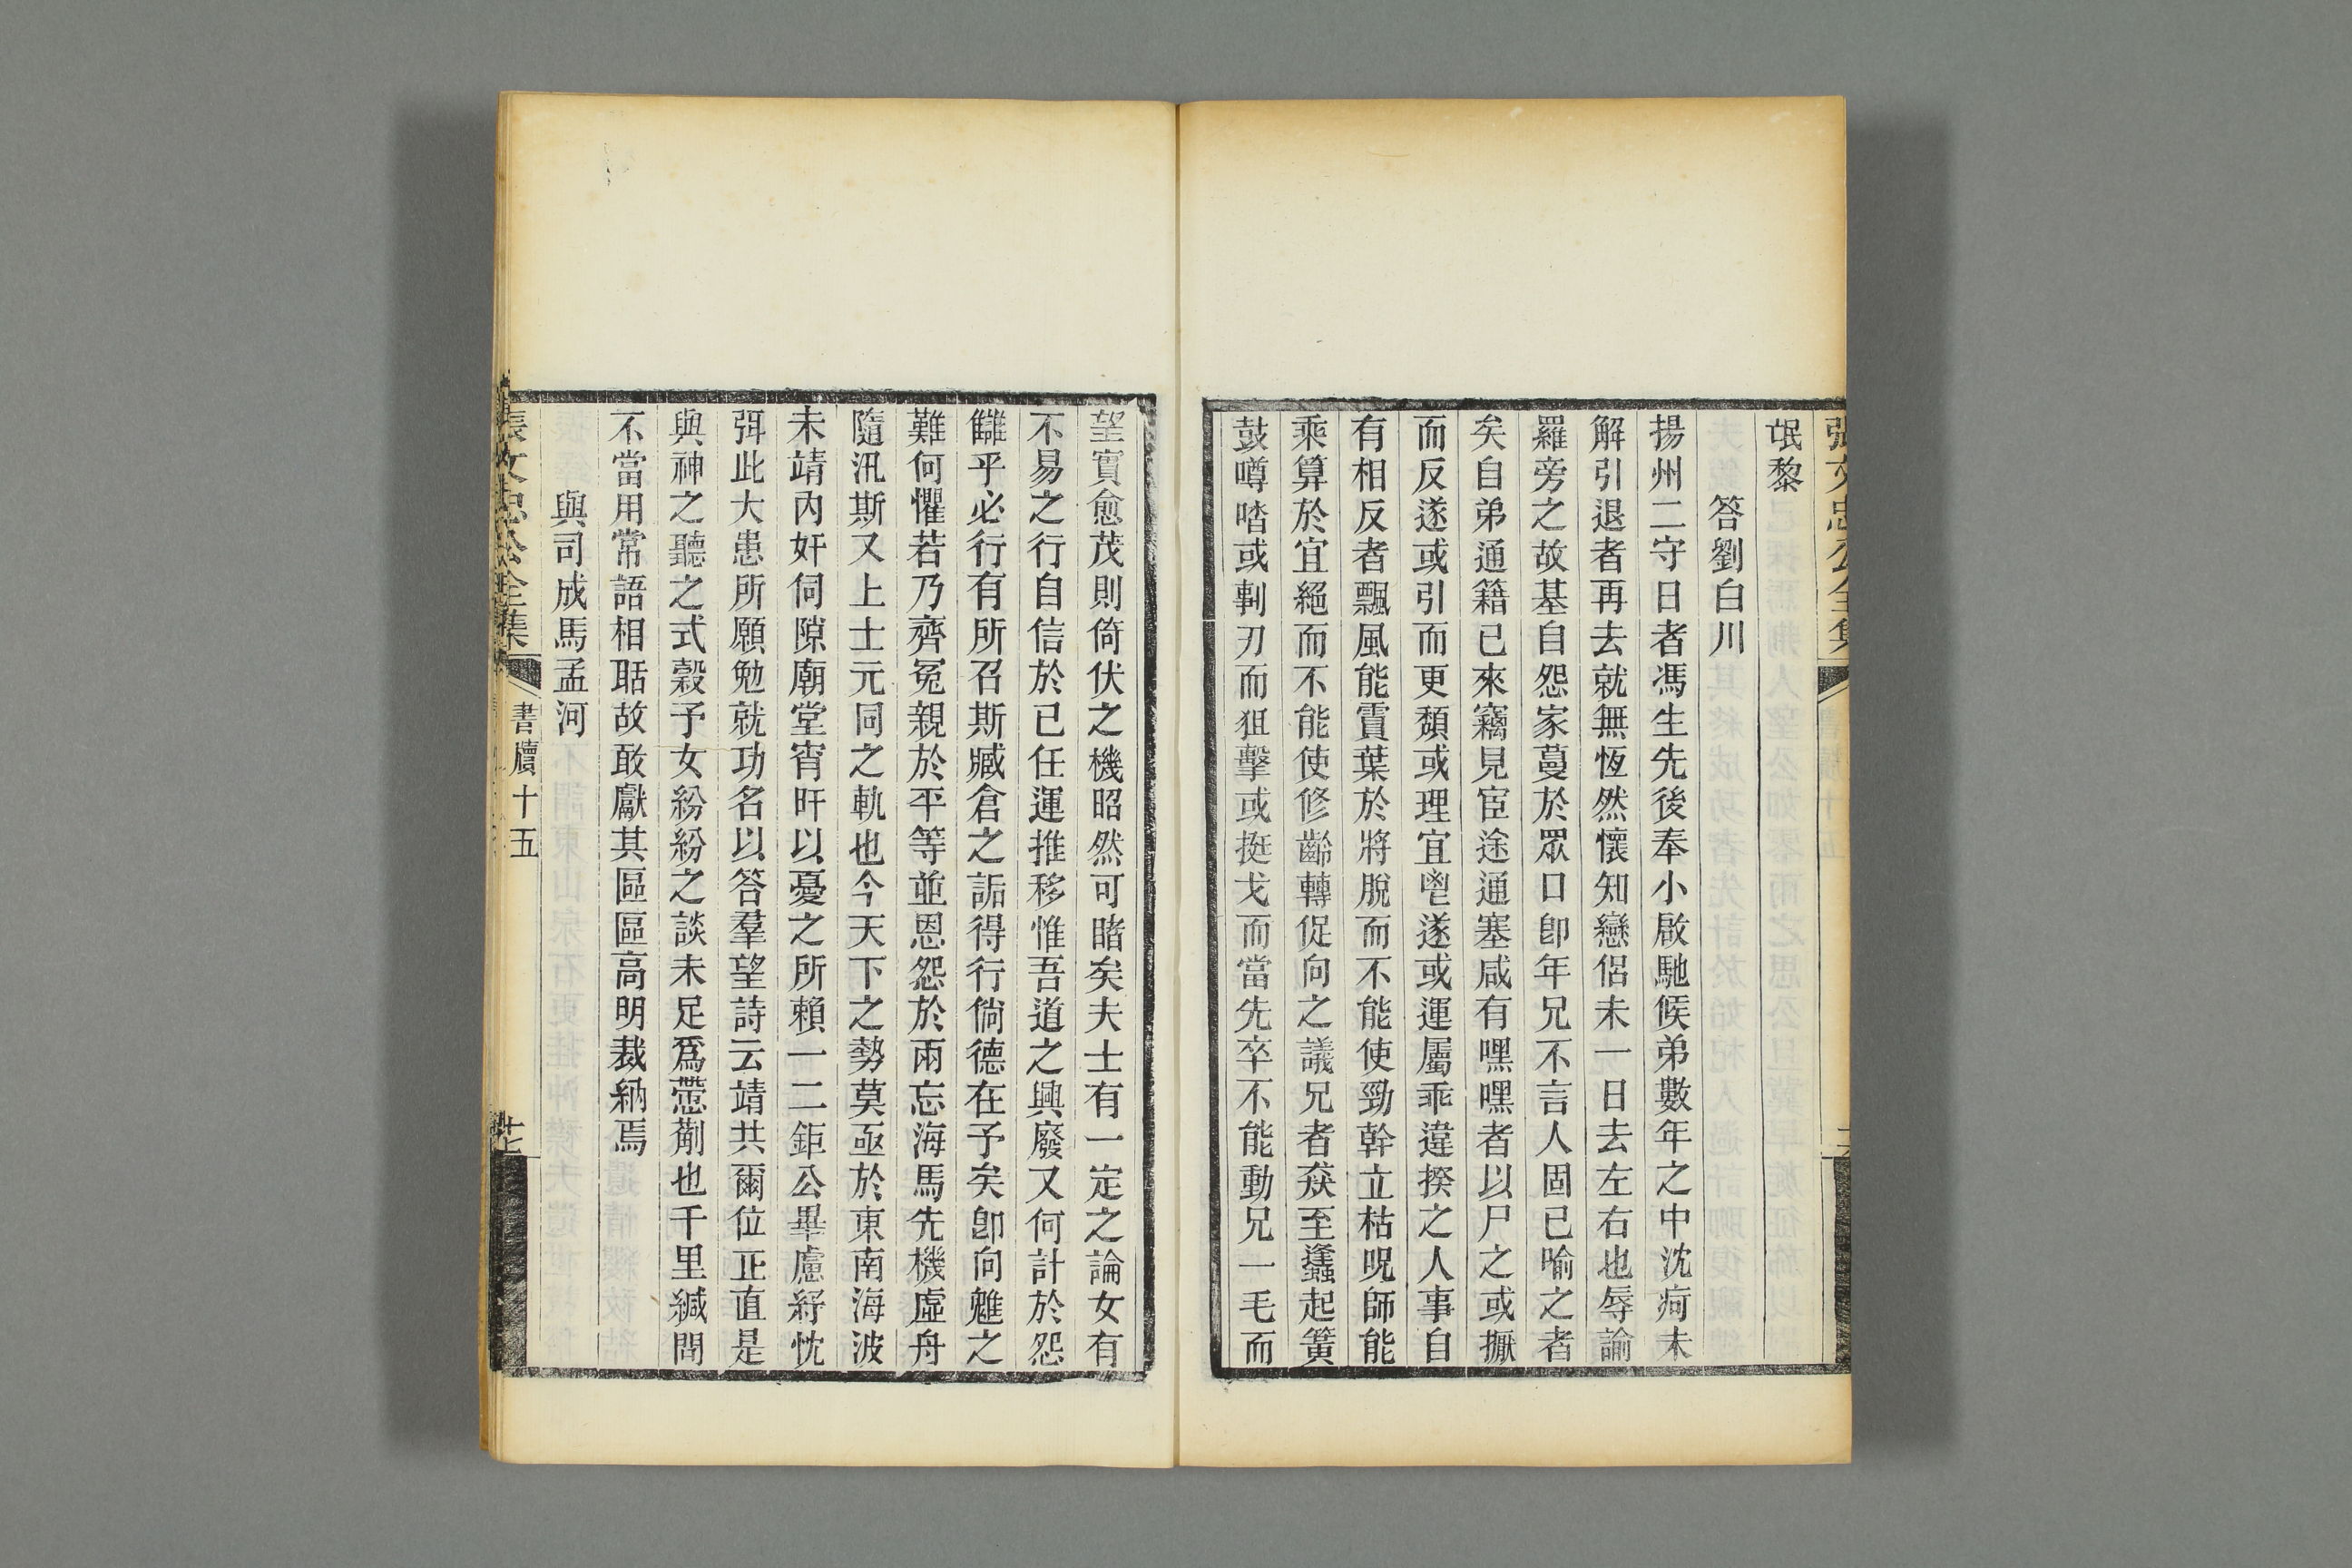 張文忠公全集
氓黎
答劉白川
揚州二守日者馮生先後奉小啟馳候弟數年之中沈痾未
解引退者再去就無恆然懷知戀侶未一日去左右也辱諭
羅旁之故基自怨家蔓於眾口卽年兄不言人固已喻之者
矣自弟通籍已來竊見宦途通塞咸有嘿嘿者以尸之或擫
而反遂或引而更頽或理宜鬯遂或運屬乖違揆之人事自
有相反者飄風能霣葉於將脫而不能使勁幹立枯呪師能
乘算於宜絕而不能使修齡轉促向之議兄者猋至蠭起簧
鼓噂喒或剚刃而狙擊或挺戈而當先卒不能動兄一毛而
望實愈茂則倚伏之機昭然可睹矣夫士有一定之論女有
不易之行自信於已任運推移惟吾道之興廢又何計於怨
讎乎必行有所召斯臧倉之詬得行倘德在予矣卽向魋之
難何懼若乃齊冤親於平等並恩怨於兩忘海馬先機虛舟
隨汎斯又上士元同之軌也今天下之勢莫亟於東南海波
未靖內奸伺隙廟堂宵旰以憂之所賴一二鉅公畢慮紓忱
弭此大患所願勉就功名以答羣望詩云靖共爾位正直是
與神之聽之式穀予女紛紛之談未足爲蔕劀也千里緘問
不當用常語相聒故敢獻其區區高明裁納焉
與司成馬孟河
張文忠公全集
書牘十五
廿七